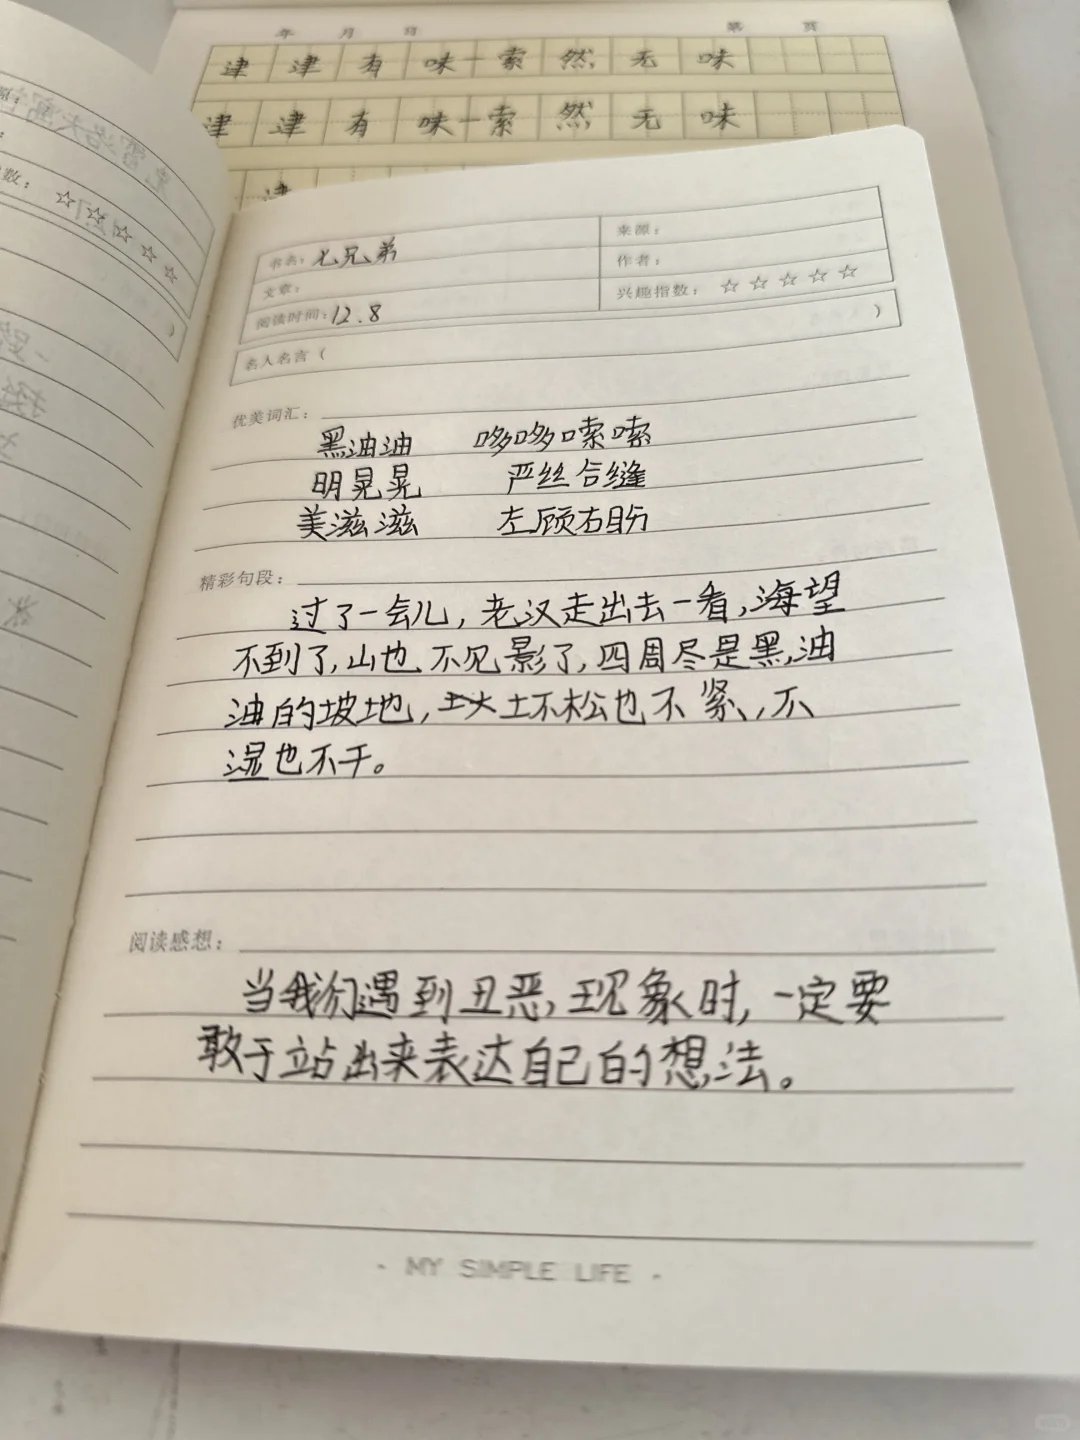 年 月 日 第 页
津津有味—索然无味
津津有味—索然无味
津
书名：七兄弟
来源：
文章：
作者：
阅读时间：12.8
兴趣指数：☆☆☆☆☆
名人名言（ ）
优美词汇：
黑油油 哆哆嗦嗦
明晃晃 严丝合缝
美滋滋 左顾右盼
精彩句段：
过了一会儿，老汉走出去一看，海望
不到了，山也不见影了，四周尽是黑油
油的坡地，土坏松也不紧，不
湿也不干。
阅读感想：
当我们遇到丑恶现象时，一定要
敢于站出来表达自己的想法。
- MY SIMPLE LIFE -